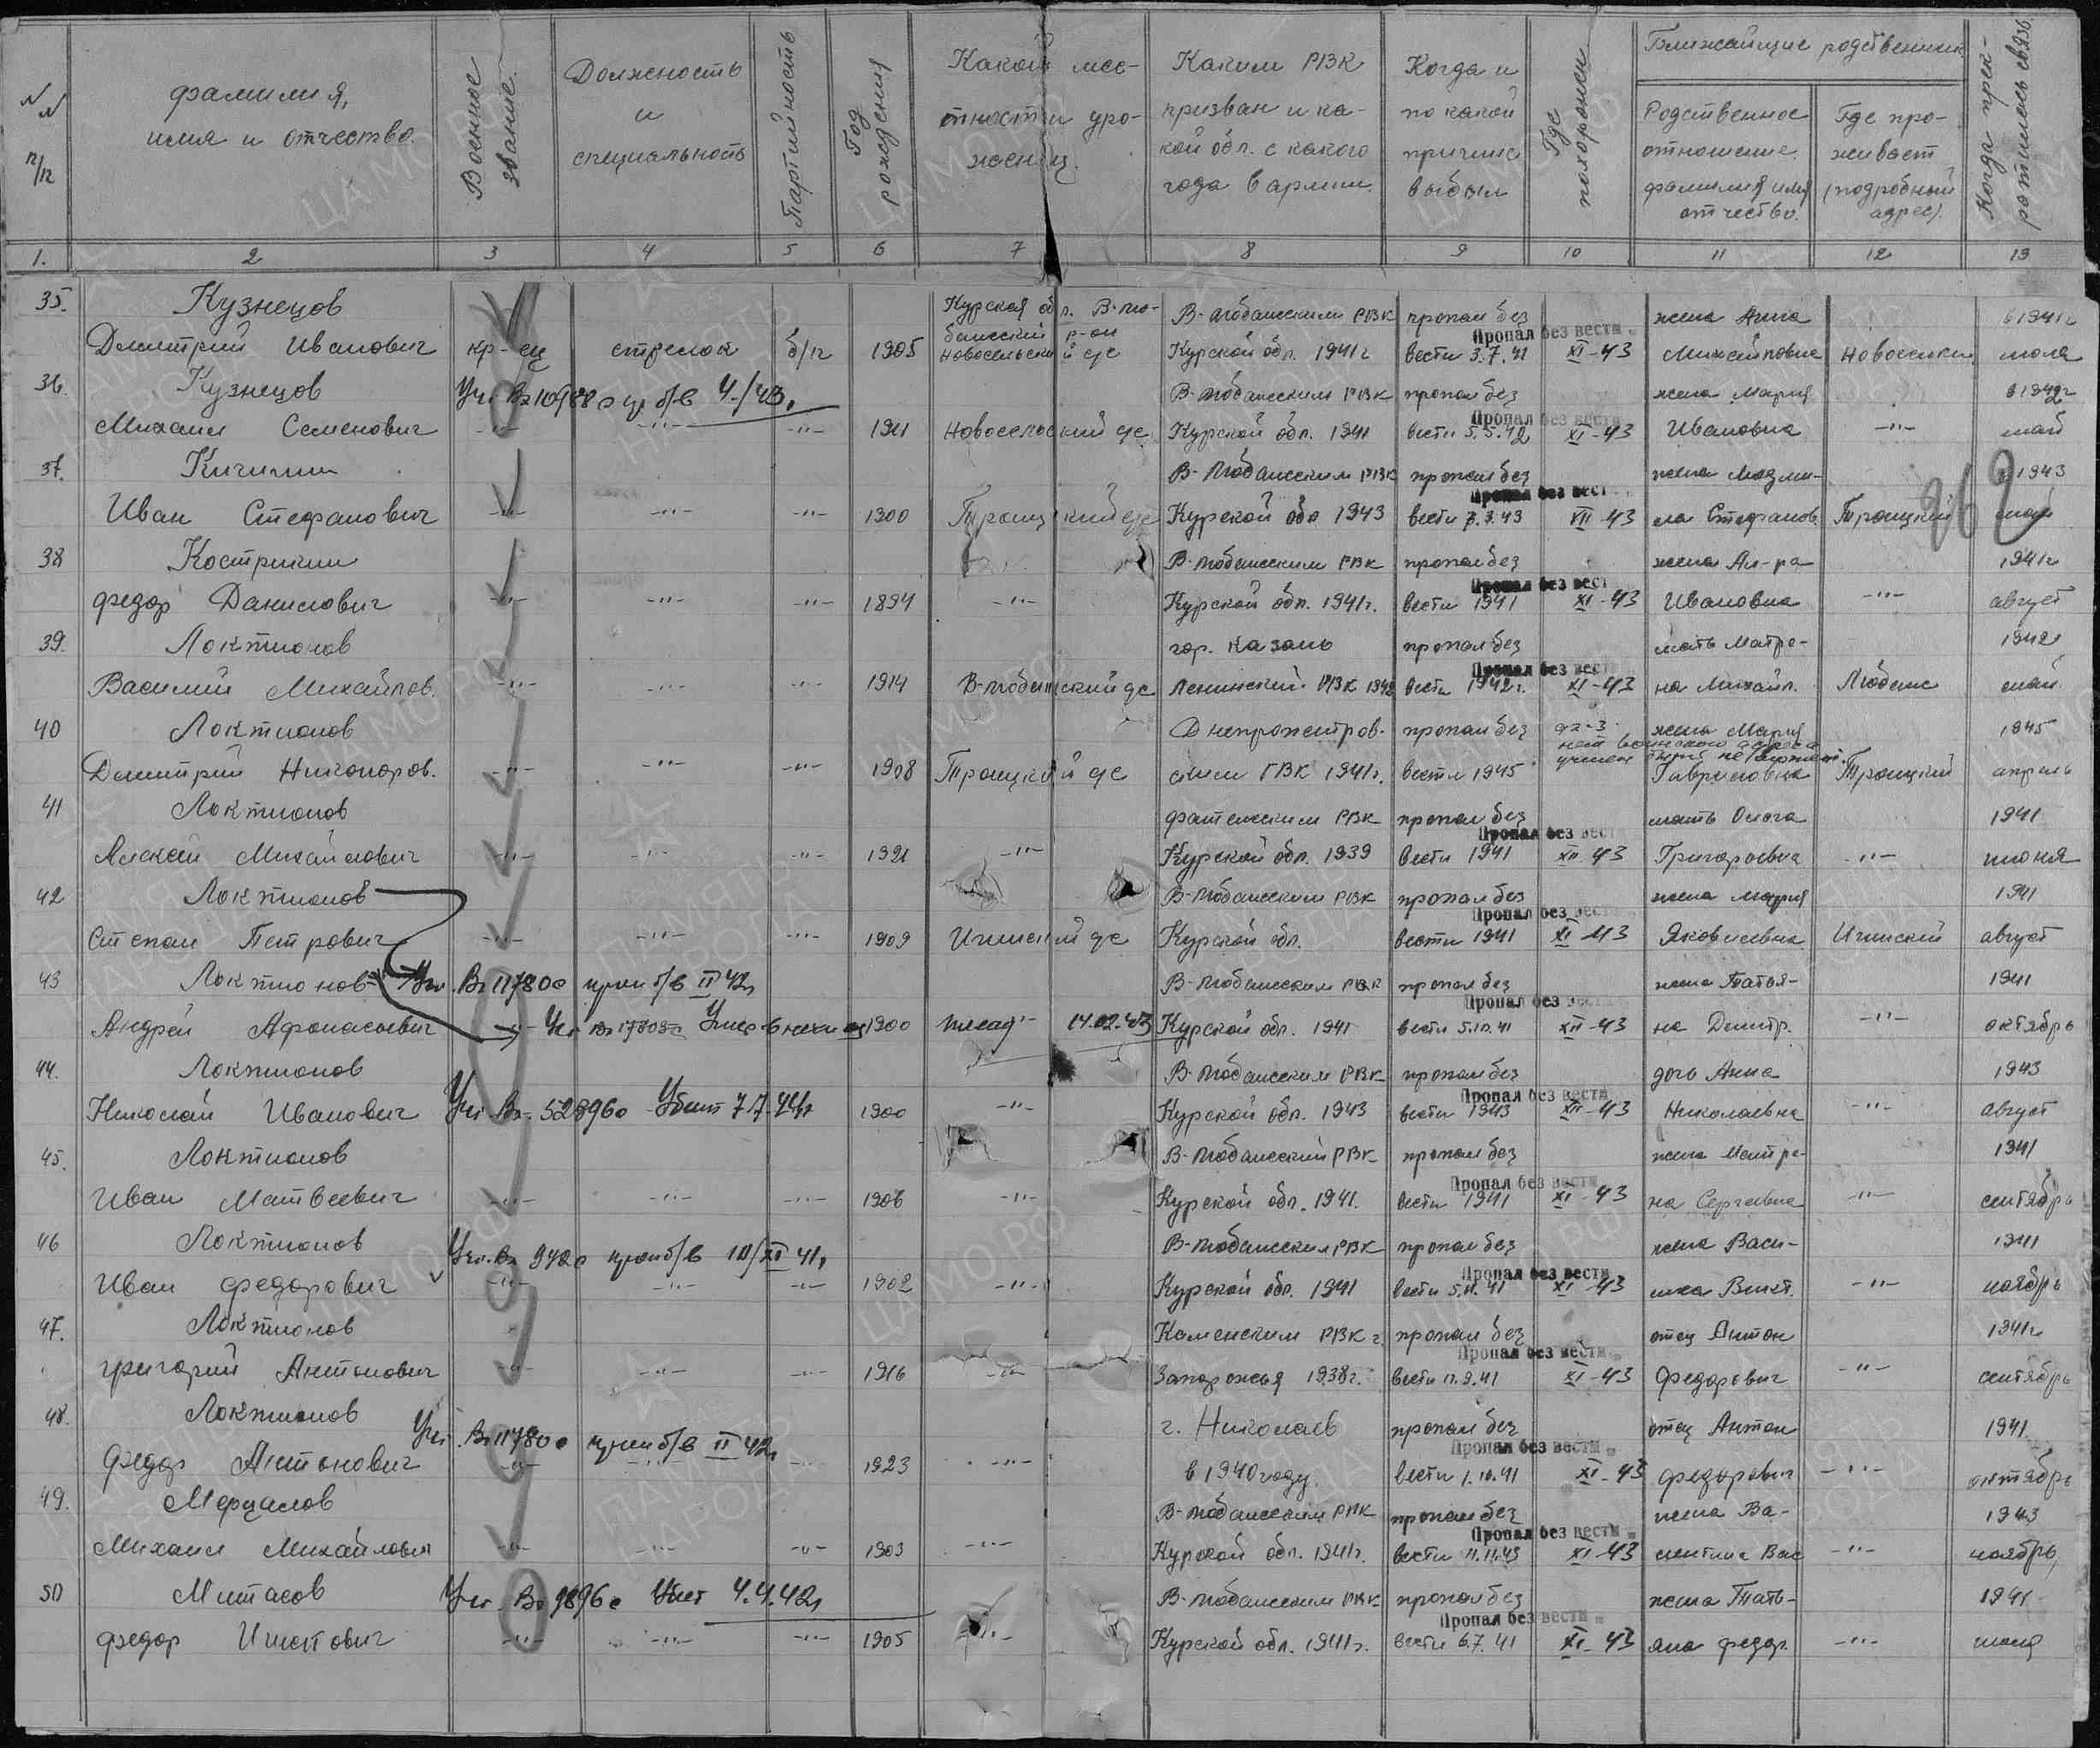 NN п/п
фамилия, имя и отчество.
Военное звание.
Должность и специальность
Партийность
Год рождения
Какой мес-тности уро-женец.
Каким РВК призван и ка-кой обл. с какого года в армии.
Когда и по какой причине выбыл
Где похоронен
Ближайшие родственники
Родственное отношение, фамилия имя отчество.
Где про-живает (подробный адрес).
Когда прек-ратилась связь.
1. 2 3 4 5 6 7 8 9 10 11 12 13
35. Кузнецов Курская обл. В-Лю- В-Любажским РВК пропал без жена Анна 1941г
бажский р-он Пропал без вести
Дмитрий Иванович кр-ец стрелок б/п 1905 Новосельский с/с Курской обл. 1941г вести 3.7.41 XI-43 Михайловна Новоселки июля
36. Кузнецов В-Любажским РВК пропал без жена Мария 1942г
Пропал без вести
Михаил Семенович -"- -"- -"- 1911 Новосельский с/с Курской обл. 1941 вести 5.5.42 XI-43 Ивановна -"- май
37. Кичигин В-Любажским РВК пропал без 1943
Пропал без вест
Иван Стефанович -"- -"- -"- 1900 Троицкий с/с Курской обл 1943 VII-43 ла Стефанов. Троицкий май
38 Кострикин В-Любажским РВК пропал без жена Ал-ра 1941г
Пропал без вест
Федор Данилович -"- -"- -"- 1894 -"- Курской обл. 1941г. вести 1941 XI-43 Ивановна -"- август
39. Локтионов гор. Казань пропал без мать Матре- 1942г
Пропал без вести
Василий Михайлов. -"- -"- -"- 1914 В-Любажский с/с Ленинский РВК 1942 вести 1942г. XI-43 на Михайл. Любаж май
40 Локтионов Днепропетров- пропал без жена Мария 1945
Дмитрий Никоноров. -"- -"- -"- 1908 Троицкий с/с ским ГВК 1941г. вести 1945 Гавриловна Троицкий апрель
41 Локтионов Фатежским РВК пропал без мать Ольга 1941
Пропал без вест
Алексей Михайлович -"- -"- -"- 1921 -"- Курской обл. 1939 вести 1941 XII-43 Григорьевна -"- июня
42 Локтионов В-Любажским РВК пропал без жена Мария 1941
Пропал без вести
Степан Петрович -"- -"- -"- 1909 Игинский с/с Курской обл. вести 1941 XI-43 Яковлевна Игинский август
43 Локтионов Уч. Вх 11780с проп б/в II 42г В-Любажским РВК пропал без жена Татья- 1941
Пропал без вести
Андрей Афонасьевич 1900 14.02.43 Курской обл. 1941 вести 5.10.41 XII-43 на Дмитр. -"- октябрь
44. Локтионов В-Любажским РВК пропал без дочь Анна 1943
Пропал без вести
Николай Иванович Уч. Вх. 52896с Убит 7.7.44г 1900 -"- Курской обл. 1943 вести 1943 XII-43 Николаевна -"- август
45. Локтионов В-Любажский РВК пропал без жена Матре- 1941
Пропал без вести
Иван Матвеевич -"- -"- -"- 1906 -"- Курской обл. 1941. вести 1941 XI-43 на Сергеевна -"- сентябрь
46 Локтионов Уч. Вх 942с проп б/в 10/XI 41г В-Любажским РВК пропал без жена Васи- 1941
Пропал без вести
Иван Федорович -"- -"- -"- 1902 -"- Курской обл. 1941 вести 5.11.41 XI-43 лиса Викт. -"- ноябрь
47. Локтионов Каменским РВК г. пропал без отец Антон 1941г
Пропал без вести
Григорий Антонович -"- -"- -"- 1916 -"- Запорожья 1938г. вести 11.9.41 XI-43 Федорович -"- сентябрь
48. Локтионов Уч. Вх 11780с проп б/в II 42г г. Николаев пропал без отец Антон 1941
Пропал без вести
Федор Антонович -"- -"- -"- 1923 -"- в 1940 году. вести 1.10.41 XI-43 Федорович -"- октябрь
49. Мерцалов В-Любажским РВК пропал без жена Ва- 1943
Пропал без вести
Михаил Михайлович -"- -"- -"- 1903 -"- Курской обл. 1941г. вести 11.11.43 XI-43 лентина Вас -"- ноябрь
50 Митасов Уч. Вх 9896с Убит 4.4.42г В-Любажским РВК пропал без жена Тать- 1941
Пропал без вести
Федор Игнатович -"- -"- -"- 1905 -"- Курской обл. 1941г. вести 6.7.41 XI-43 яна Федор. -"- июля